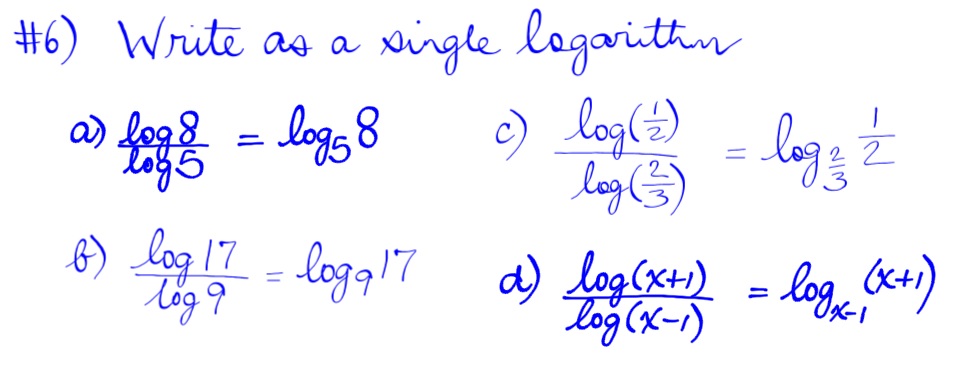 #6) Write as a single logarithm
a) log 8 / log 5 = log₅ 8
b) log 17 / log 9 = log₉ 17
c) log(1/2) / log(2/3) = log_{2/3} 1/2
d) log(x+1) / log(x-1) = log_{x-1} (x+1)